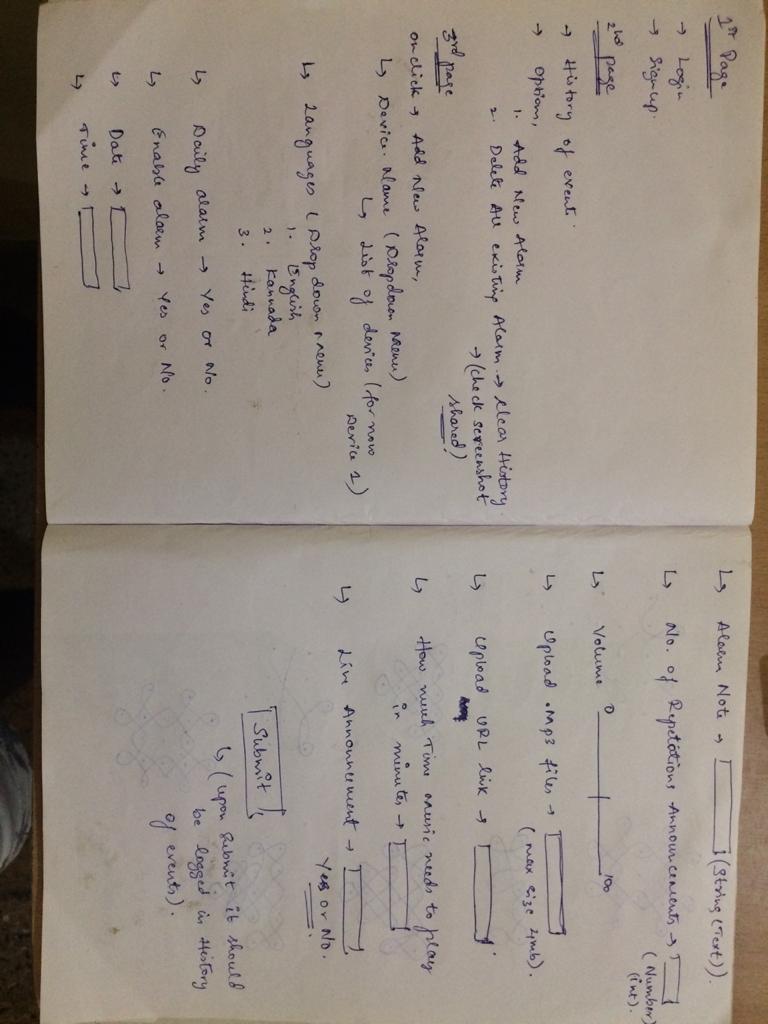 1st Page
→ Login
→ Signup.
2nd page
→ History of event.
→ Options,
1. Add New Alarm
2. Delete All existing Alarm → Clear History
→ (check screenshot
shared)
3rd page
onclick → Add New Alarm,
↳ Device Name (Dropdown Menu)
↳ List of devices (for now
Device 1)
↳ Languages (Drop down Menu)
1. English
2. Kannada
3. Hindi
↳ Daily alarm → Yes or No.
↳ Enable alarm → Yes or No.
↳ Date →
↳ Time →
↳ Alarm Note → (String (Text)).
↳ No. of Repetations Announcements → (Number)
(int).
↳ Volume 0 100
↳ Upload .Mp3 files →
(max size 4mb).
↳ Upload URL link →
↳ How much Time music needs to play
in minutes →
↳ Live Announcement →
Yes or No.
Submit
↳ (upon Submit it should
be logged in History
of events).